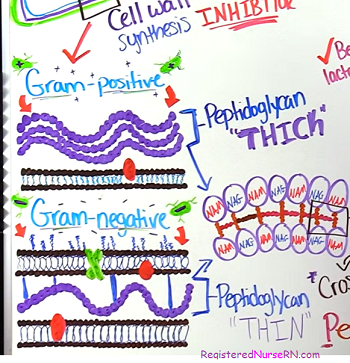 Cell wall
synthesis INHIBITOR
Gram-positive
Peptidoglycan
"THICK"
NAM NAG NAM NAG NAM NAG NAM
NAM NAG NAM NAG NAM NAG NAM
Gram-negative
Peptidoglycan
"THIN"
RegisteredNurseRN.com